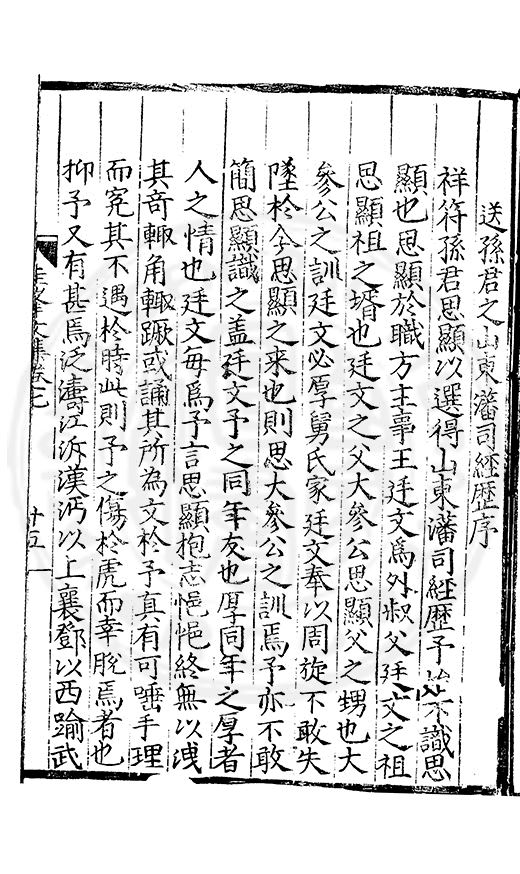 送孫君之山東藩司經歷序
祥符孫君思顯以選得山東藩司經歷予始不識思
顯也思顯於職方主事王廷文爲外叔父廷文之祖
思顯祖之壻也廷文之父大參公思顯父之甥也大
參公之訓廷文必厚舅氏家廷文奉以周旋不敢失
墜於今思顯之來也則思大參公之訓焉予亦不敢
簡思顯識之盖廷文予之同年友也厚同年之厚者
人之情也廷文每爲予言思顯抱志悒悒終無以洩
其奇輙角輙蹶或誦其所為文於予真有可唾手理
而究其不遇於時此則予之傷於虎而幸脫焉者也
抑予又有甚焉泛濤江泝漢沔以上襄鄧以西踰武
文集卷之
十五